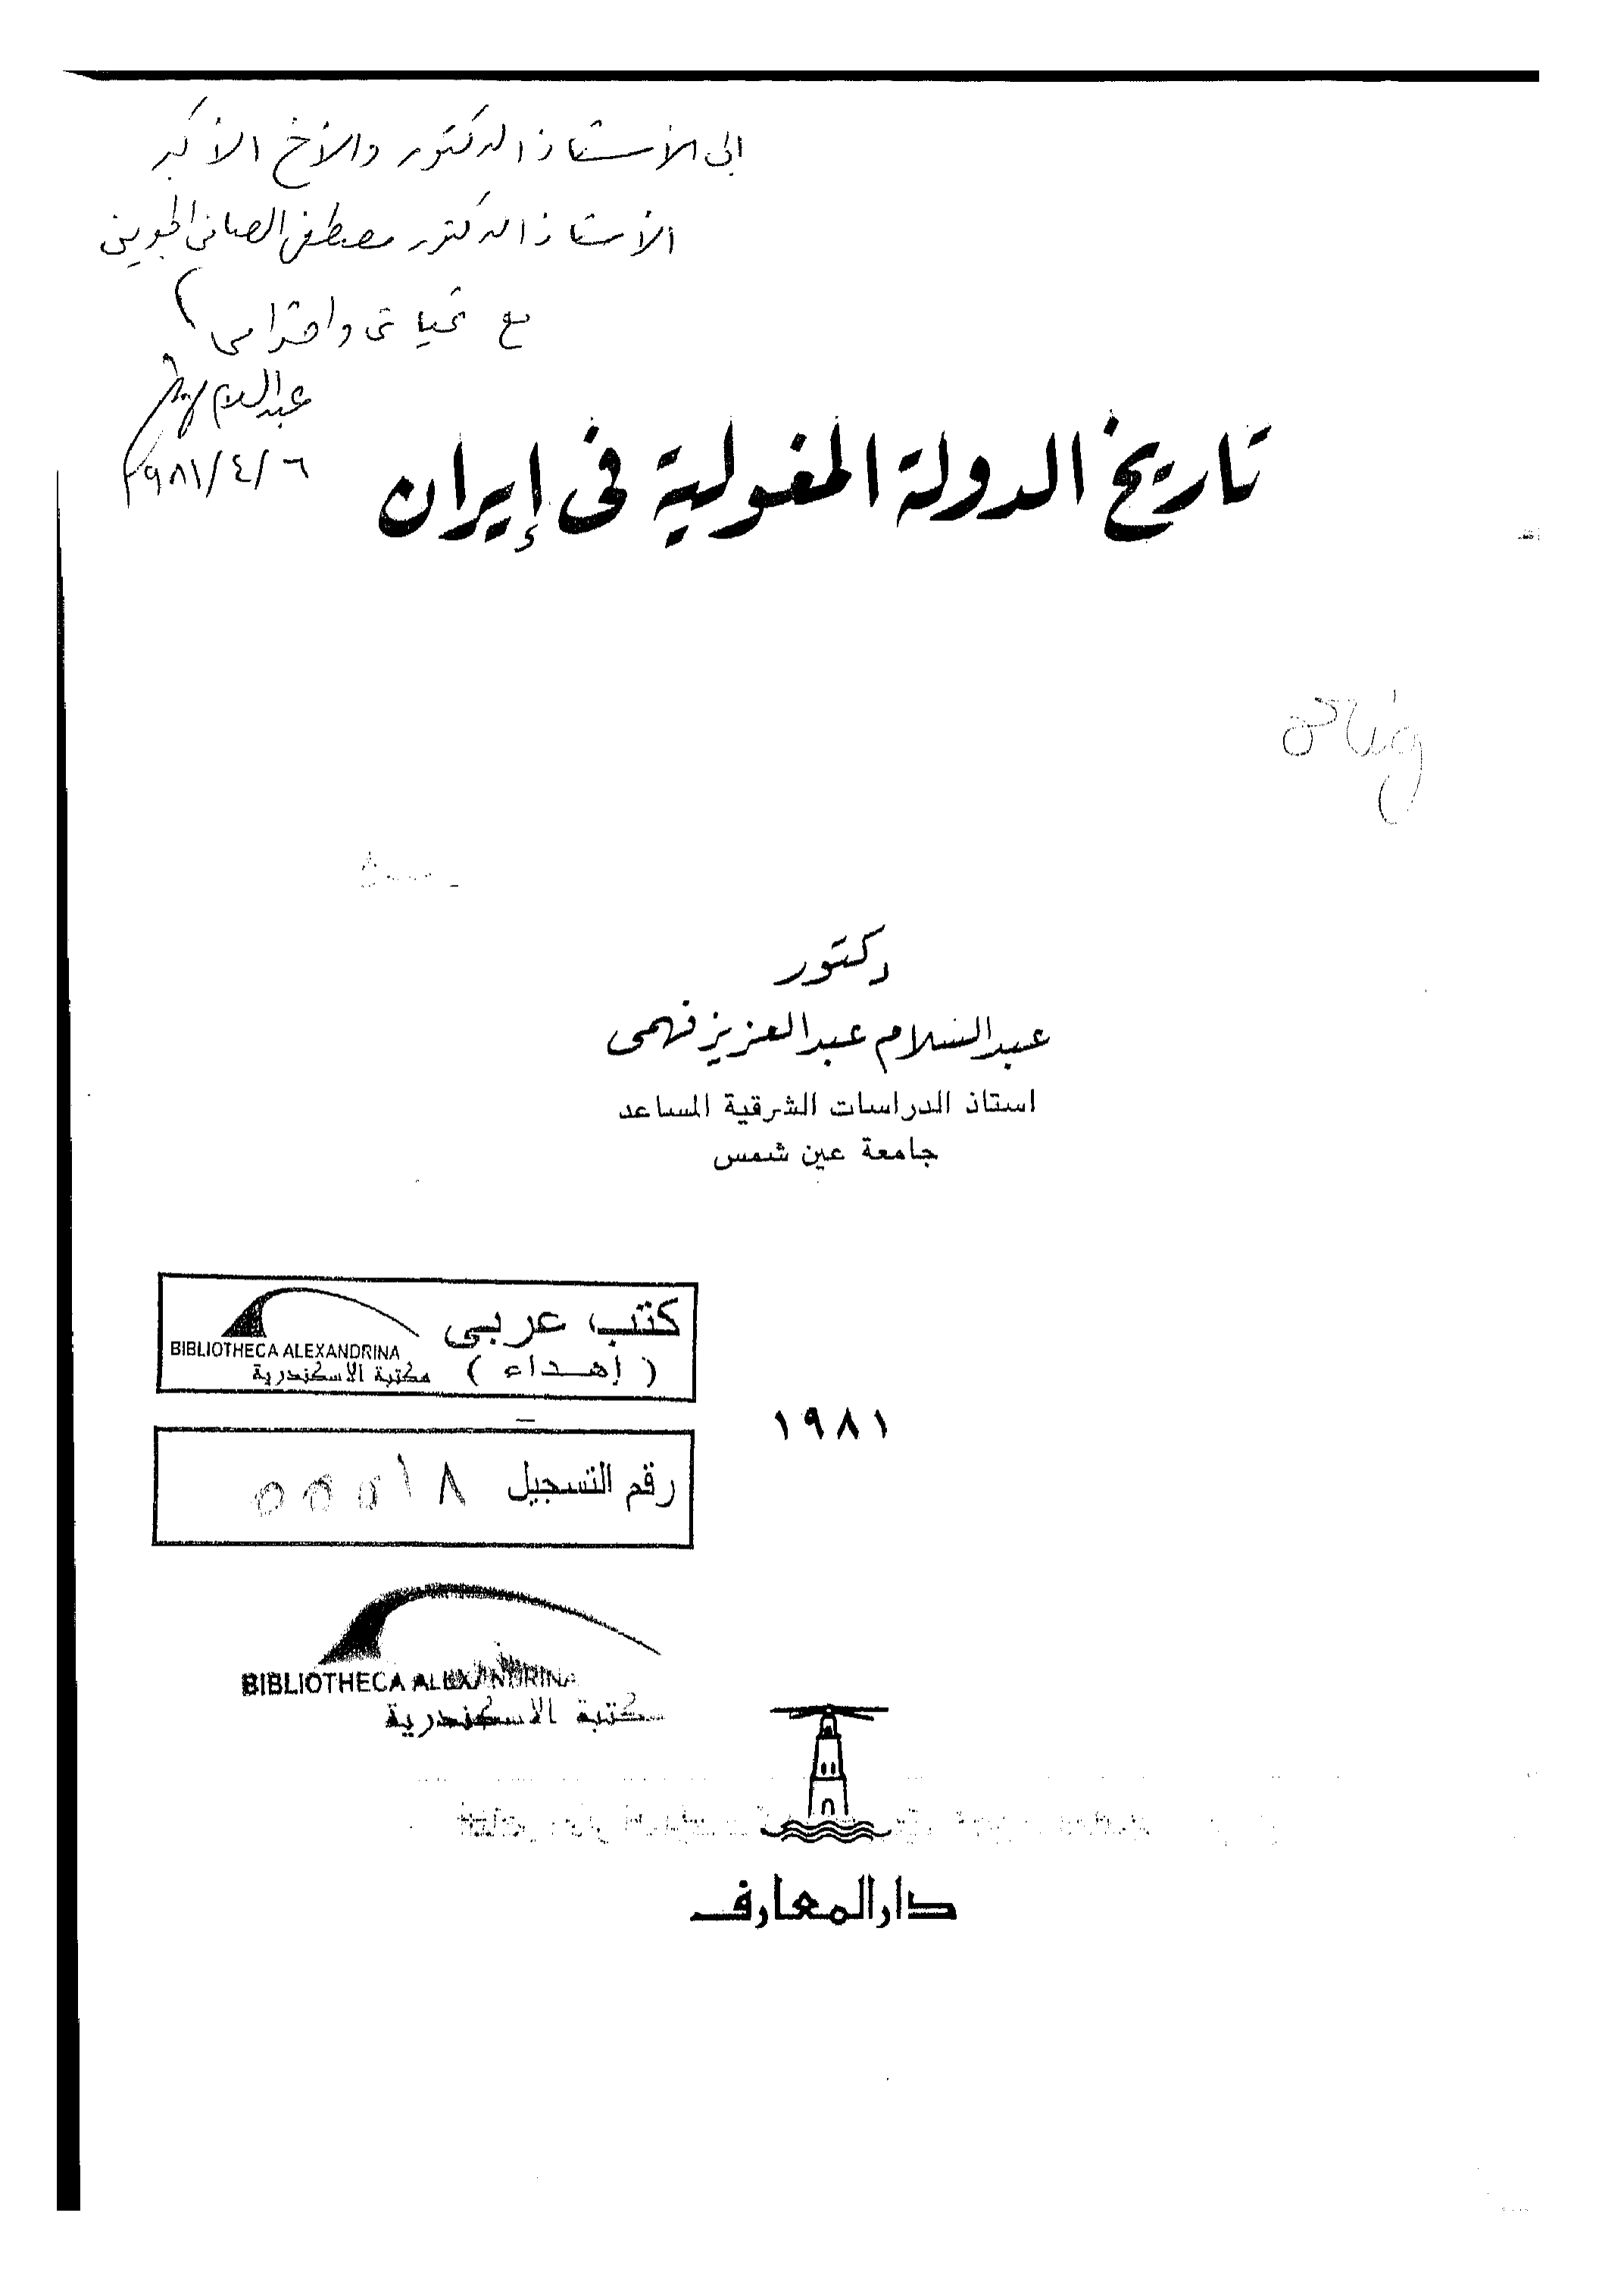 إلى الأستاذ الدكتور والأخ الأكبر
الأستاذ الدكتور مصطفى الصاوى الجوينى
مع تحياتى واحترامى
عبد السلام فهمى
٦/٤/١٩٨١
تاريخ الدولة المغولية فى إيران
دكتور
عبد السلام عبد العزيز فهمى
استاذ الدراسات الشرقية المساعد
جامعة عين شمس
كتب عربى
BIBLIOTHECA ALEXANDRINA
مكتبة الاسكندرية
( إهداء )
١٩٨١
رقم التسجيل
BIBLIOTHECA ALEXANDRINA
مكتبة الاسكندرية
دار المعارف